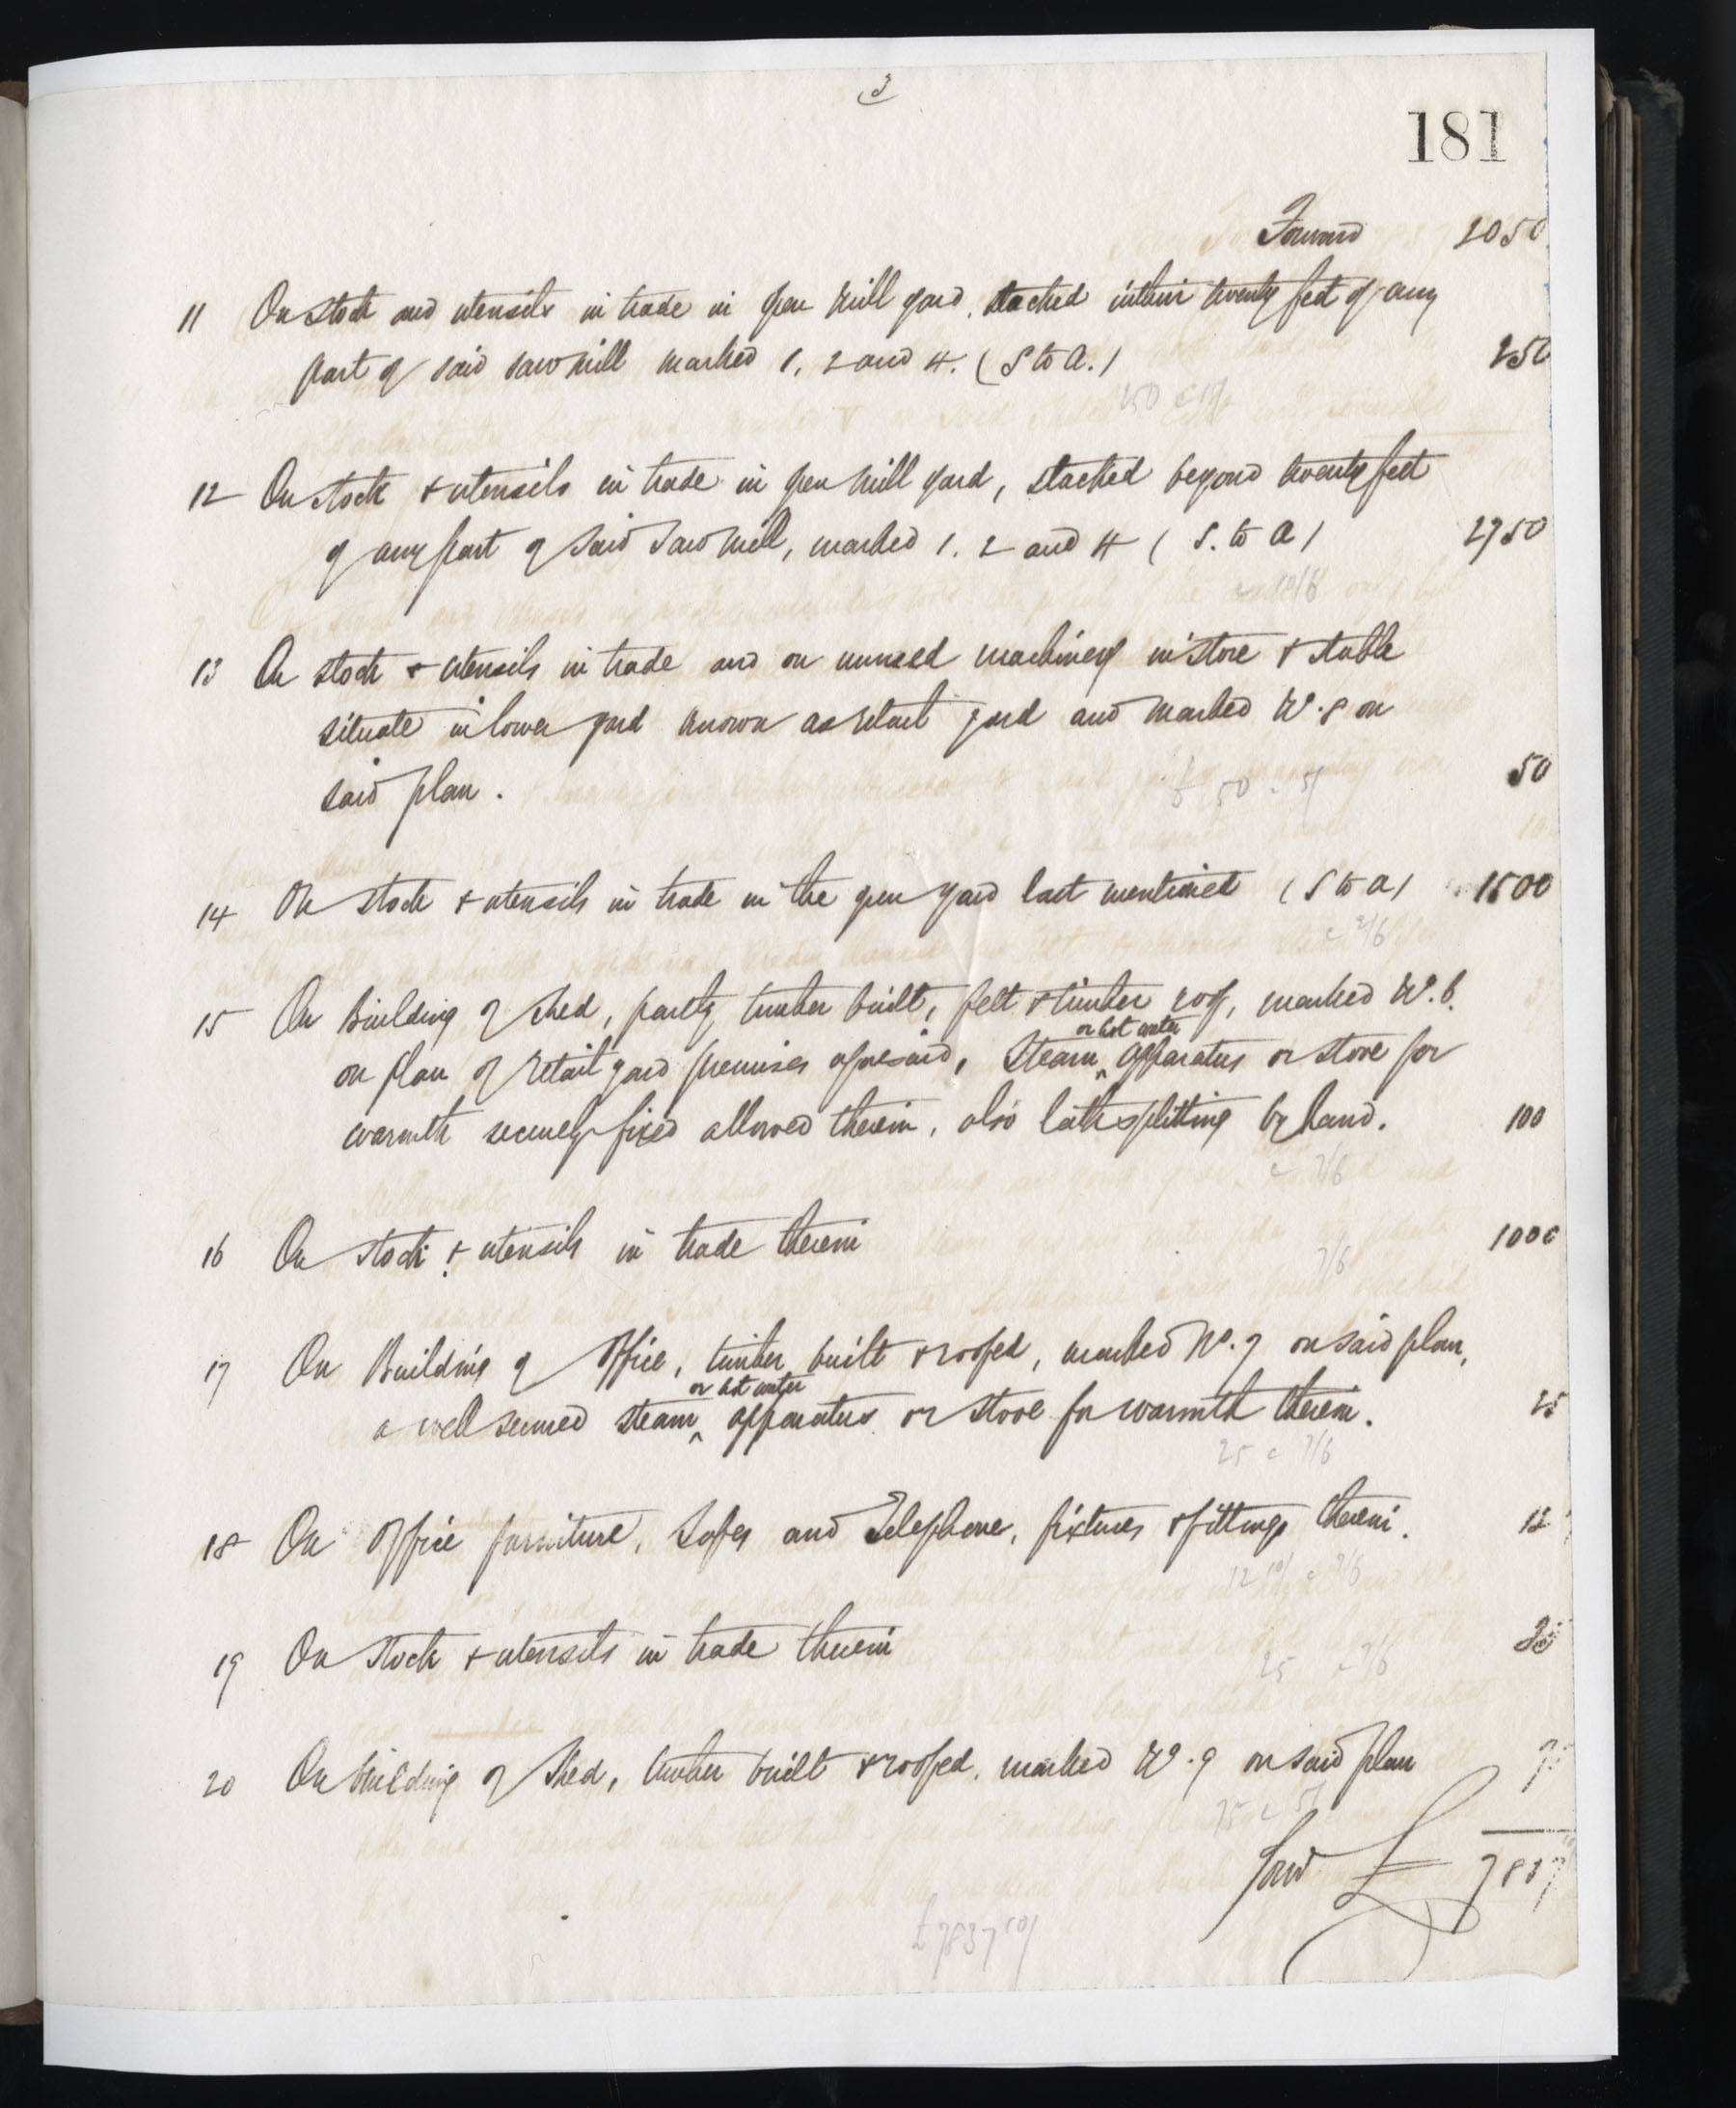 3
181
Forward 2050
11 On stock and utensils in trade in open mill yard, stacked within twenty feet of any
part of said saw mill marked 1, 2 and 4. (S to A.) 250
250 @
12 On stock & utensils in trade in open mill yard, stacked beyond twenty feet
of any part of said saw mill, marked 1. 2 and 4 (S. to A) 2750
10/6
13 On stock & utensils in trade and on unused machinery in store & stable
situate in lower yard known as retail yard and marked No. 8 on
said plan. 50
£ 50 @ 5/
14 On stock & utensils in trade in the open yard last mentioned (S to A) 1500
@ 2/6
15 On Building of shed, partly timber built, felt & timber roof, marked No. 6.
or hot water
on plan of retail yard premises aforesaid, Steam ^ apparatus or stove for
warmth securely fixed allowed therein, also lath splitting by hand. 100
@ 7/6
16 On stock & utensils in trade therein 1000
7/6
17 On Building of Office, timber built & roofed, marked No. 7 on said plan,
or hot water
a well secured steam ^ apparatus or stove for warmth therein. 25
25 @ 7/6
18 On Office furniture, Safes and Telephone, fixtures & fittings therein. 12
12 10/ @ 7/6
19 On stock & utensils in trade therein
25 @ 7/6
20 On building of Shed, timber built & roofed, marked No. 9 on said plan
75 @ 5/
Ford £ 7837
£7837 10/